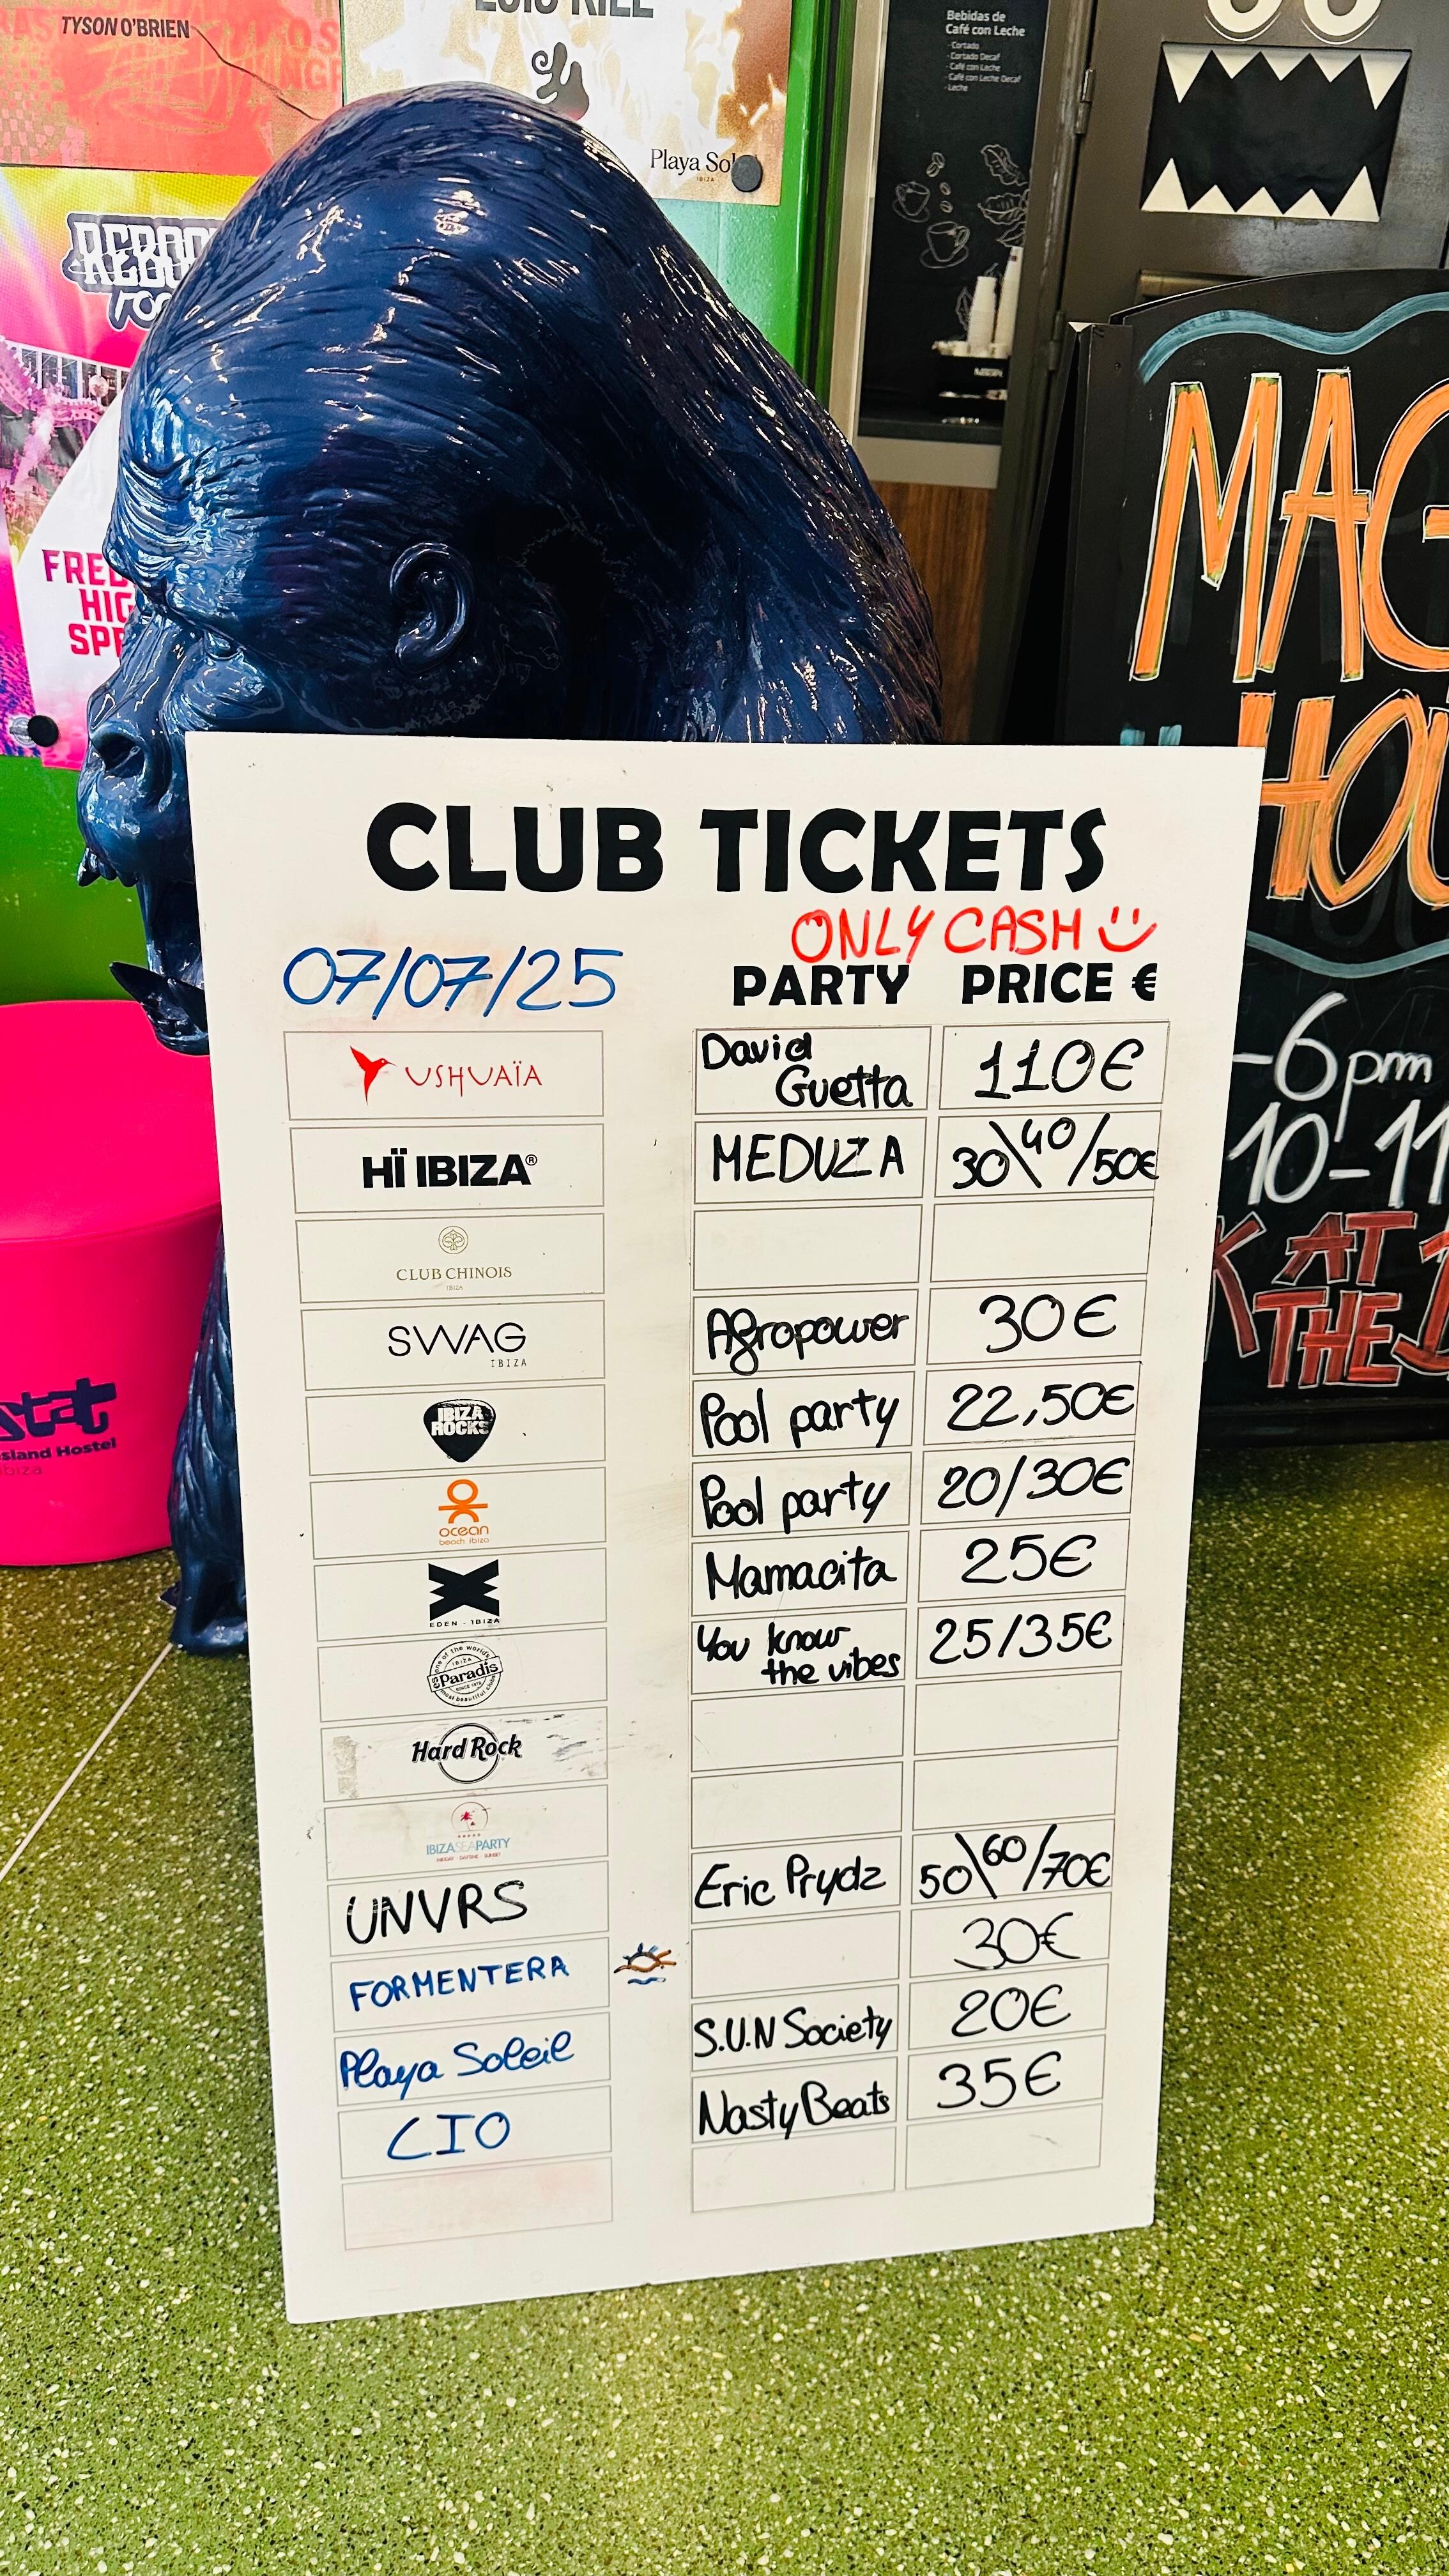 TYSON O'BRIEN
Playa Sol
IBIZA
Bebidas de
Café con Leche
· Cortado
· Cortado Decaf
· Café con Leche
· Café con Leche Decaf
· Leche
FRED
HIG
SPE
MAG
HOU
-6pm
10-11
K AT
THE
stat
sland Hostel
ibiza
CLUB TICKETS
ONLY CASH
07/07/25 PARTY PRICE €
USHUAÏA David Guetta 110€
HÏ IBIZA® MEDUZA 30\40/50€
CLUB CHINOIS
IBIZA
SWAG IBIZA Agropower 30€
IBIZA ROCKS Pool party 22,50€
ocean beach ibiza Pool party 20/30€
EDEN - IBIZA Mamacita 25€
Paradis You know the vibes 25/35€
Hard Rock
IBIZASEAPARTY
UNVRS Eric Prydz 50\60/70€
FORMENTERA 30€
Playa Soleil S.U.N Society 20€
CIO Nasty Beats 35€